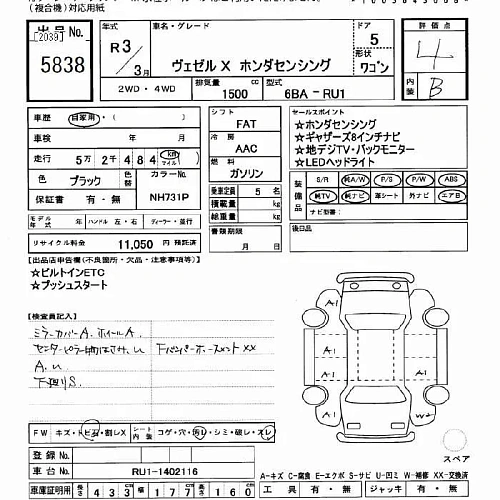 (複合機)対応用紙
出品No.
[2039]
5838
年式
R3/3月
2WD・4WD
車名・グレード
ヴェゼル X ホンダセンシング
ドア
5
形状
ワゴン
排気量
1500 cc
型式
6BA-RU1
評価点
4
内装
B
車歴 自家用・( )
車検 年 月
走行 5万2千484 KM マイル
色 ブラック カラーNo. NH731P
保証書 有・無
モデル年式 年 ハンドル 左・右 ディーラー・並行
リサイクル料金 11,050円 預託済
シフト
FAT
冷房
AAC
燃料
ガソリン
乗車定員 5 名
積載量 kg
総重量 kg
書類期限
月 日
セールスポイント
★ホンダセンシング
★ギャザーズ8インチナビ
★地デジTV・バックモニター
★LEDヘッドライト
装備品
S/R 純A/W P/S P/W ABS
純TV 純ナビ 革シート 外ナビ エアB
ナビ型番( )
後日品
【出品店申告欄(不良箇所・欠品・注意事項等)】
★ビルトインETC
★プッシュスタート
【検査員記入】
ミラーカバーA、ホイールA
A、U
下廻りS
A1
A1
A1
A1
W2
スペア
FW キズ・トビ石・割レX
シート内装 コゲ・穴・汚レ・シミ・破レ・スレ
登録No.
車台No. RU1-1402116
車庫証明用 長さ 433 幅 177 高さ 160
A-キズ C-腐食 E-エクボ S-サビ U-凹ミ W-補修 XX-交換済
工具 有・無 ジャッキ 有・無